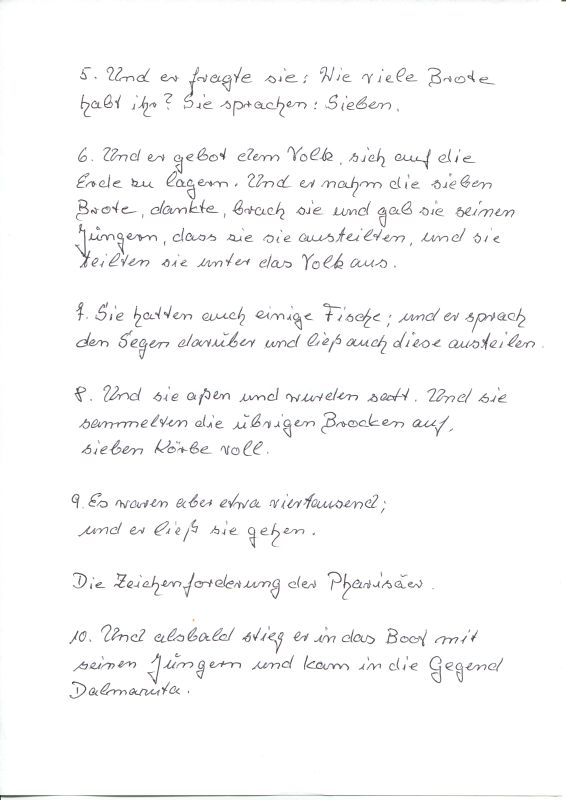 5. Und er fragte sie: Wie viele Brote
habt ihr? Sie sprachen: Sieben.
6. Und er gebot dem Volk, sich auf die
Erde zu lagern. Und er nahm die sieben
Brote, dankte, brach sie und gab sie seinen
Jüngern, dass sie sie austeilten, und sie
teilten sie unter das Volk aus.
7. Sie hatten auch einige Fische; und er sprach
den Segen darüber und ließ auch diese austeilen.
8. Und sie aßen und wurden satt. Und sie
sammelten die übrigen Brocken auf,
sieben Körbe voll.
9. Es waren aber etwa viertausend;
und er ließ sie gehen.
Die Zeichenforderung der Pharisäer.
10. Und alsbald stieg er in das Boot mit
seinen Jüngern und kam in die Gegend
Dalmanuta.